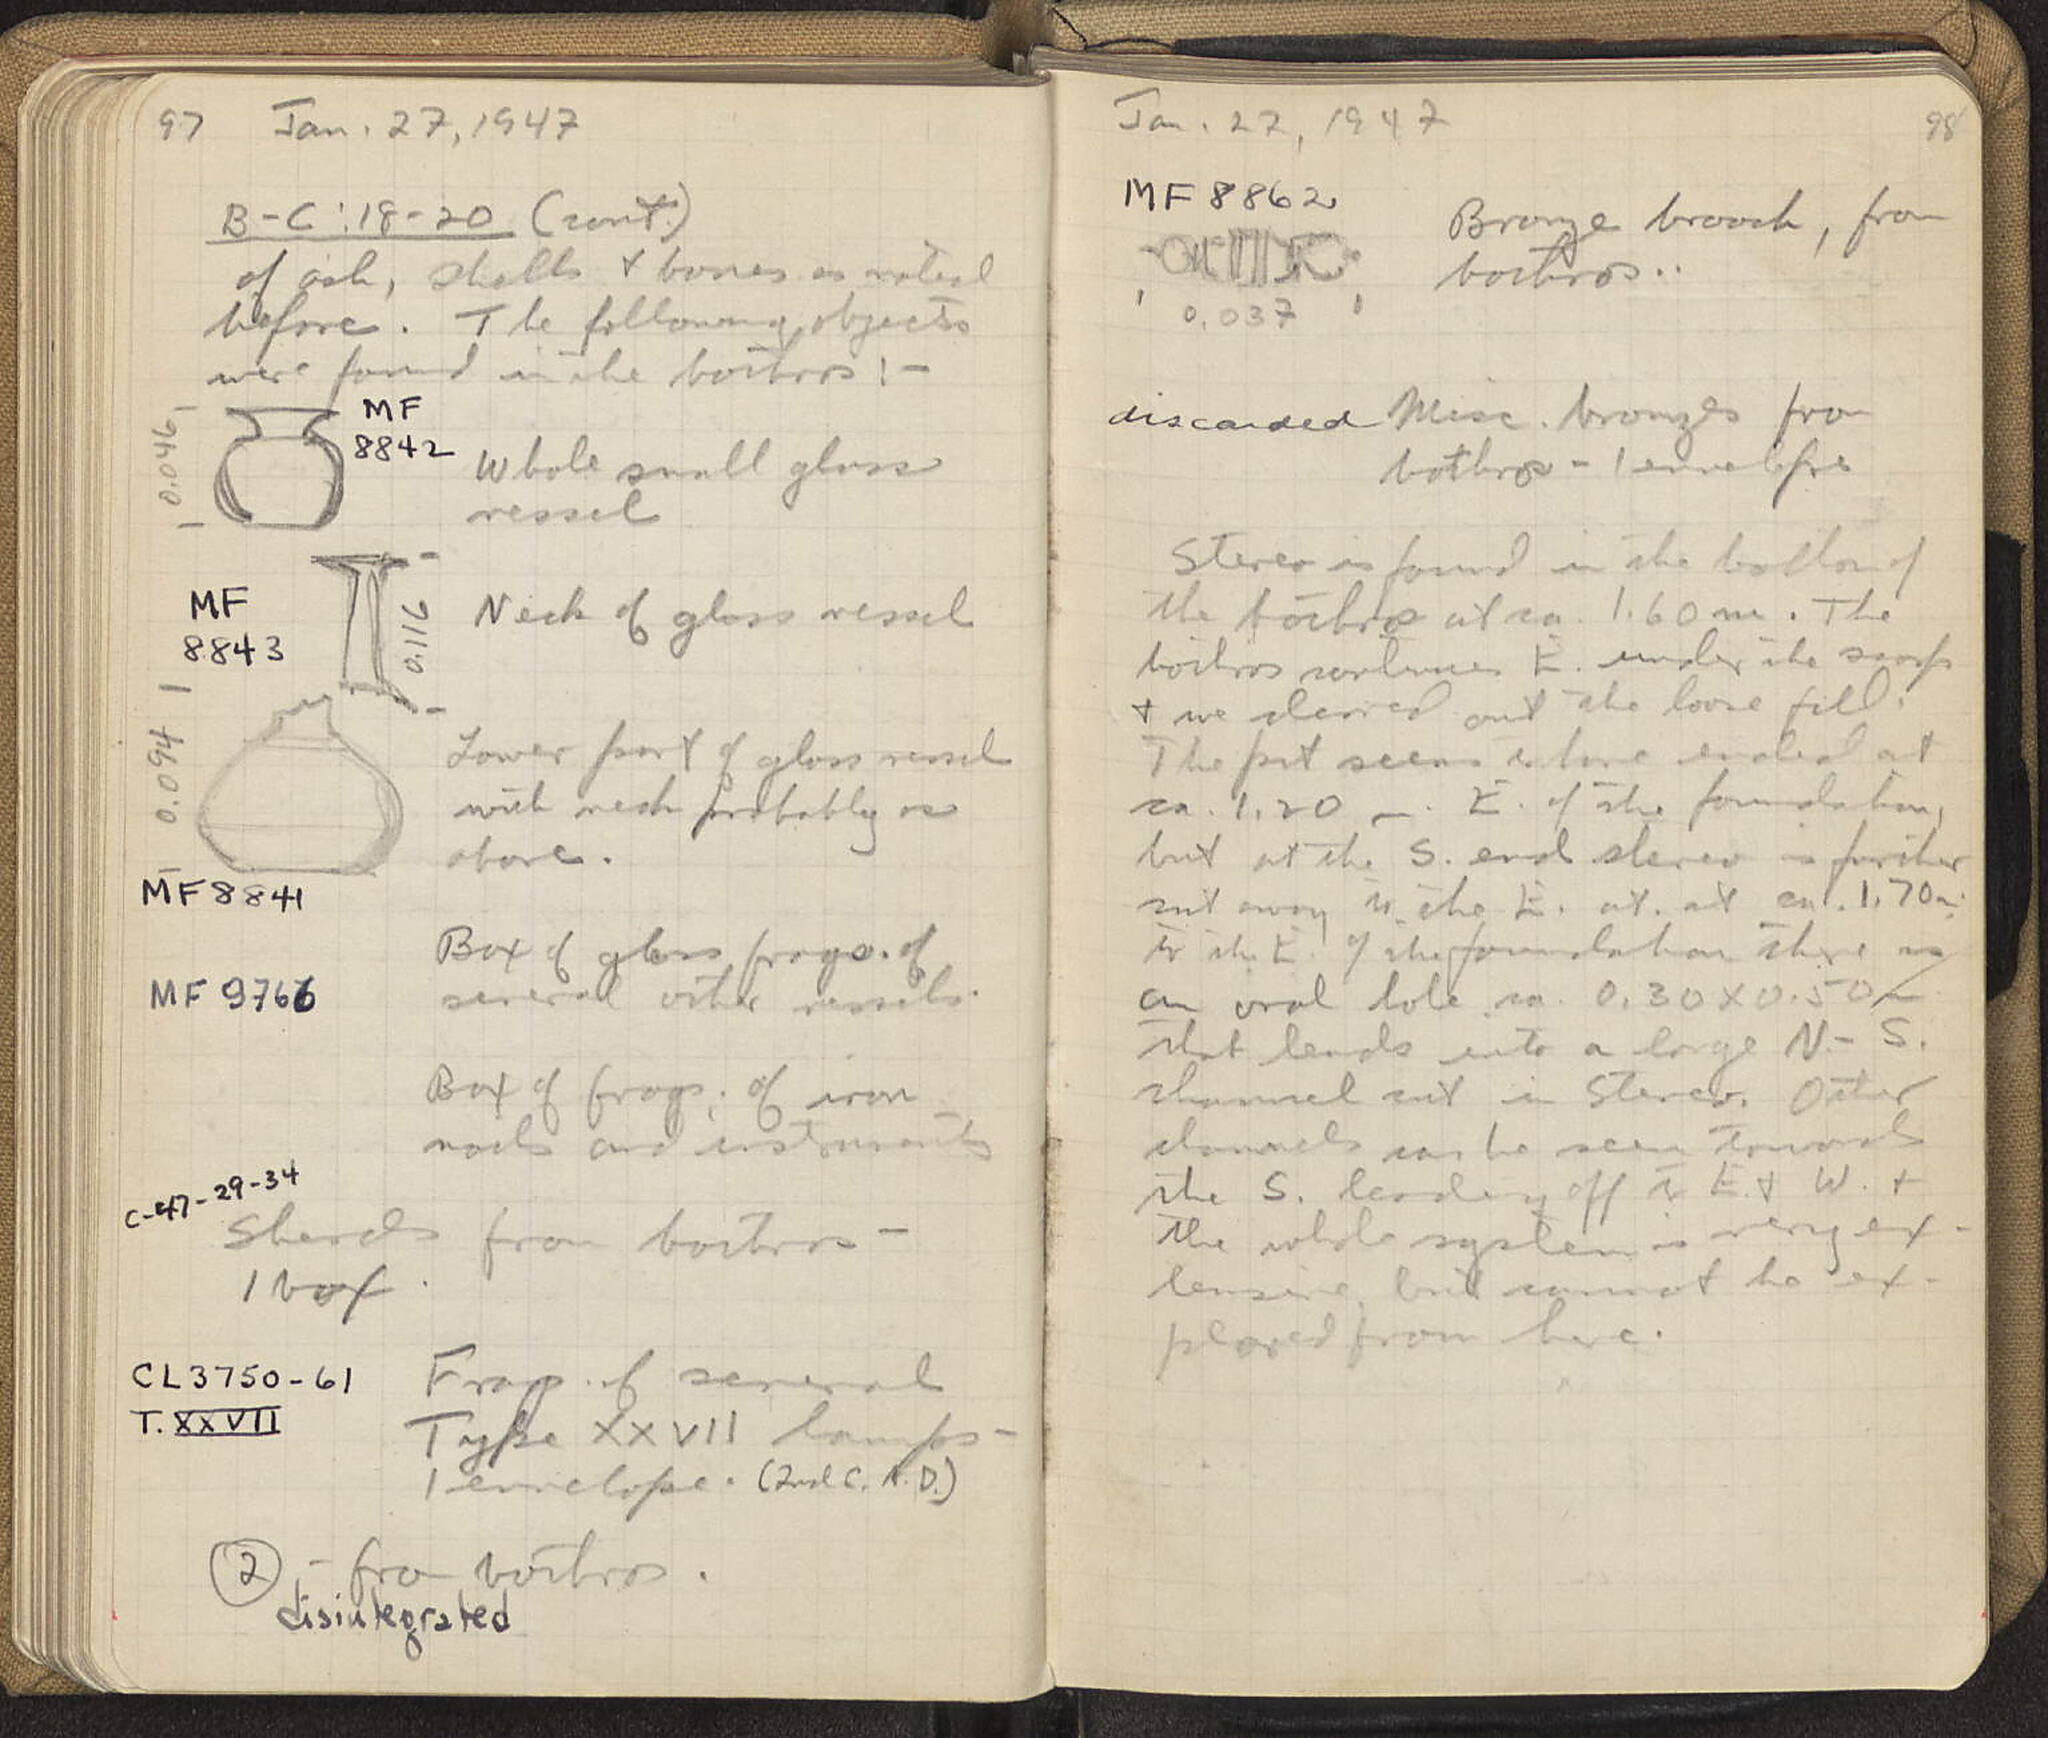 97 Jan. 27, 1947
B-C:18-20 (cont.)
of ash, shells + bones as noted
before. The following objects
were found in the bothros:-
0.046
MF
8842
Whole small glass
vessel
MF
8843
0.116
Neck of glass vessel
0.094
Lower part of glass vessel
with neck probably as
above.
MF 8841
Box of glass frags. of
several other vessels.
MF 9766
Box of frags. of iron
nails and instruments
C-47-29-34
Sherds from bothros -
1 box.
CL 3750-61
T. XXVII
Frags. of several
Type XXVII lamps -
1 envelope. (2nd C. A.D.)
2 - from bothros.
disintegrated
Jan. 27, 1947 98
MF 8862
0.037
Bronze brooch, from
bothros..
discarded Misc. bronzes from
bothros - 1 envelope
Stereo is found in the bottom of
the bothros at ca. 1.60 m. The
bothros continues E. under the scarp
+ we cleared out the loose fill.
The pit seems to have ended at
ca. 1.20 m. E. of the foundation,
but at the S. end stereo is further
cut away to the E. at. at ca. 1.70 m.
to the E. of the foundation there is
an oval hole ca. 0.30 x 0.50 m
that leads into a large N-S.
channel cut in stereo. Other
channels can be seen towards
the S. leading off to E. + W. +
the whole system is very ex-
tensive, but cannot be ex-
plored from here.